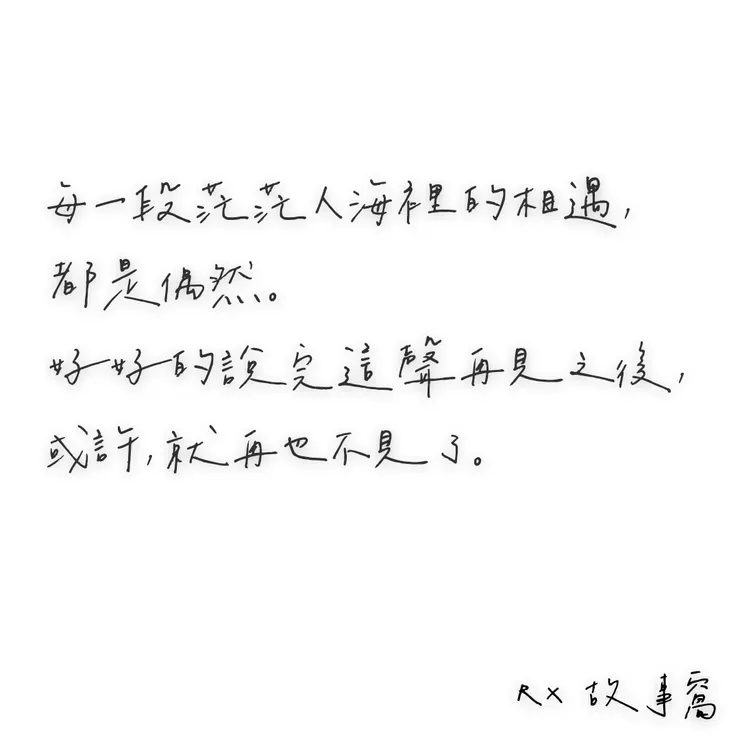 每一段茫茫人海裡的相遇，
都是偶然。
好好的說完這聲再見之後，
或許，就再也不見了。
RX 故事窩